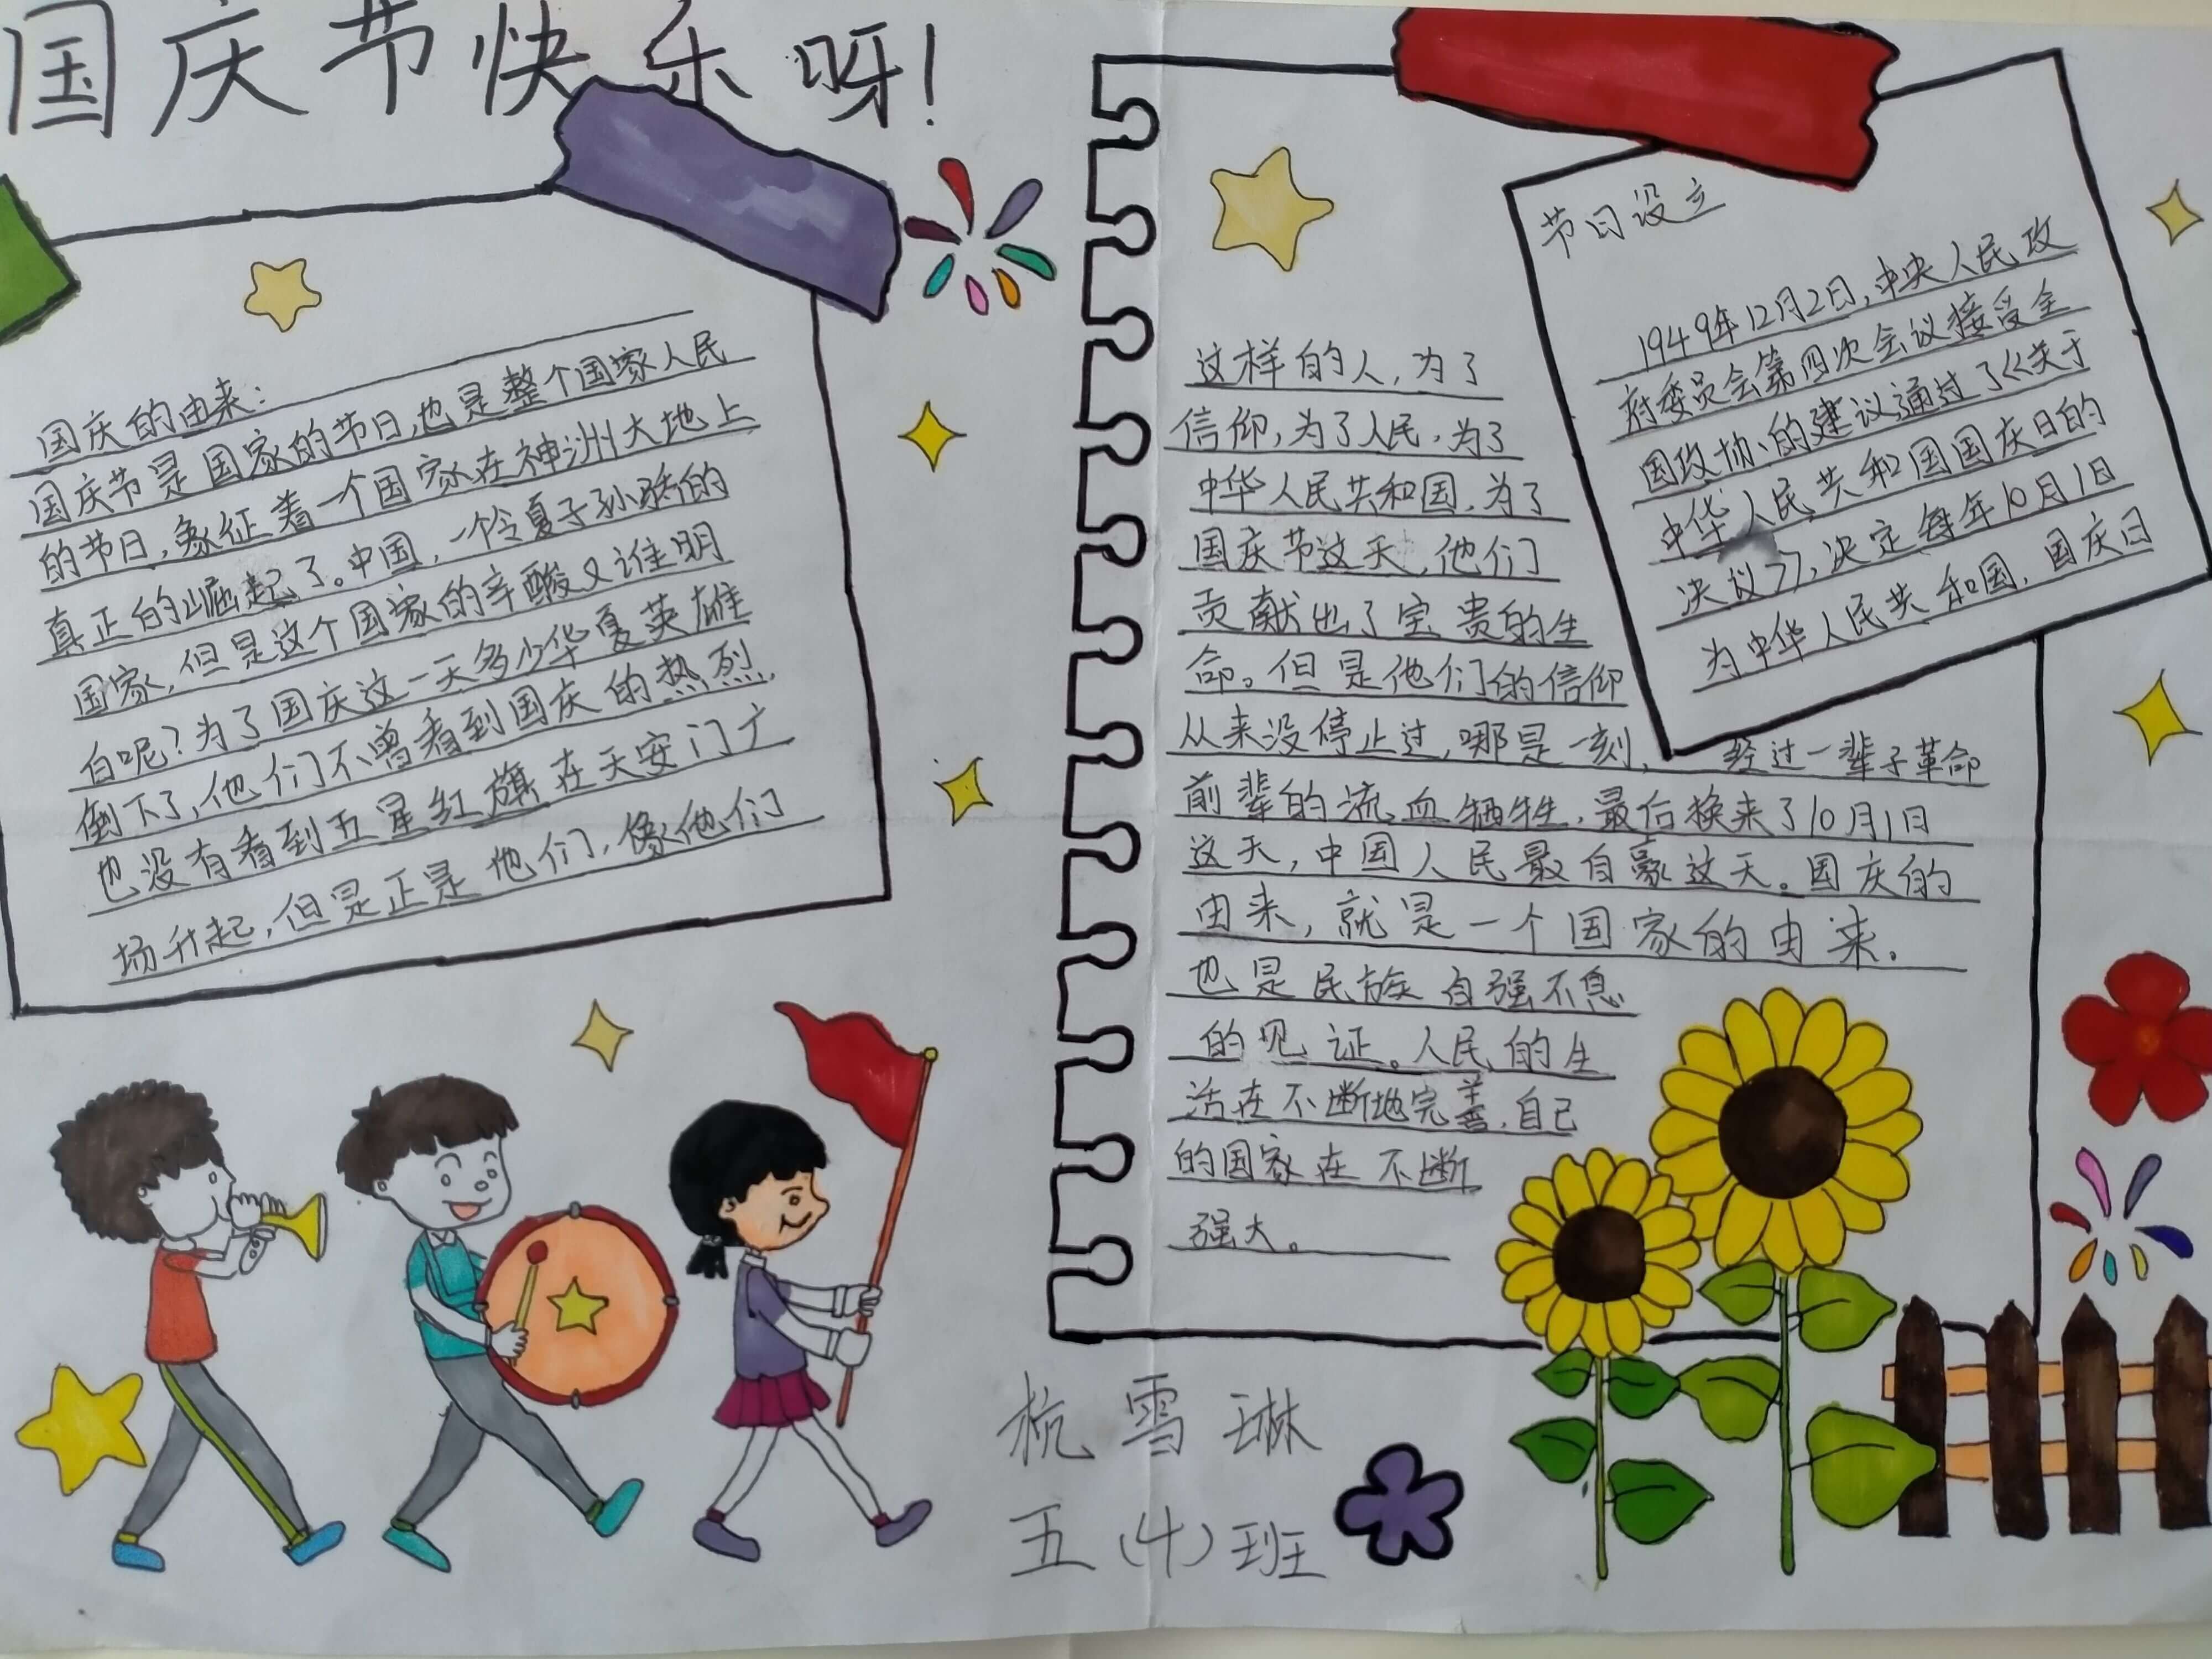 国庆节快乐呀！
国庆的由来：
国庆节是国家的节日，也是整个国家人民
的节日，象征着一个国家在神洲大地上
真正的崛起了。中国，一个令夏子孙骄的
国家，但是这个国家的辛酸又谁明
白呢？为了国庆这一天多少华夏英雄
倒下了，他们不曾看到国庆的热烈，
也没有看到五星红旗在天安门广
场升起，但是正是他们，像他们
这样的人，为了
信仰，为了人民，为了
中华人民共和国，为了
国庆节这天，他们
贡献出了宝贵的生
命。但是他们的信仰
从来没停止过，哪是一刻，经过一辈子革命
前辈的流血牺牲，最后换来了10月1日
这天，中国人民最自豪这天。国庆的
由来，就是一个国家的由来。
也是民族自强不息
的见证。人民的生
活在不断地完善，自己
的国家在不断
强大。
节日设立
1949年12月2日，中央人民政
府委员会第四次会议接受全
国政协的建议通过了《关于
中华人民共和国国庆日的
决议》，决定每年10月1日
为中华人民共和国，国庆日
杭雪琳
五（4）班